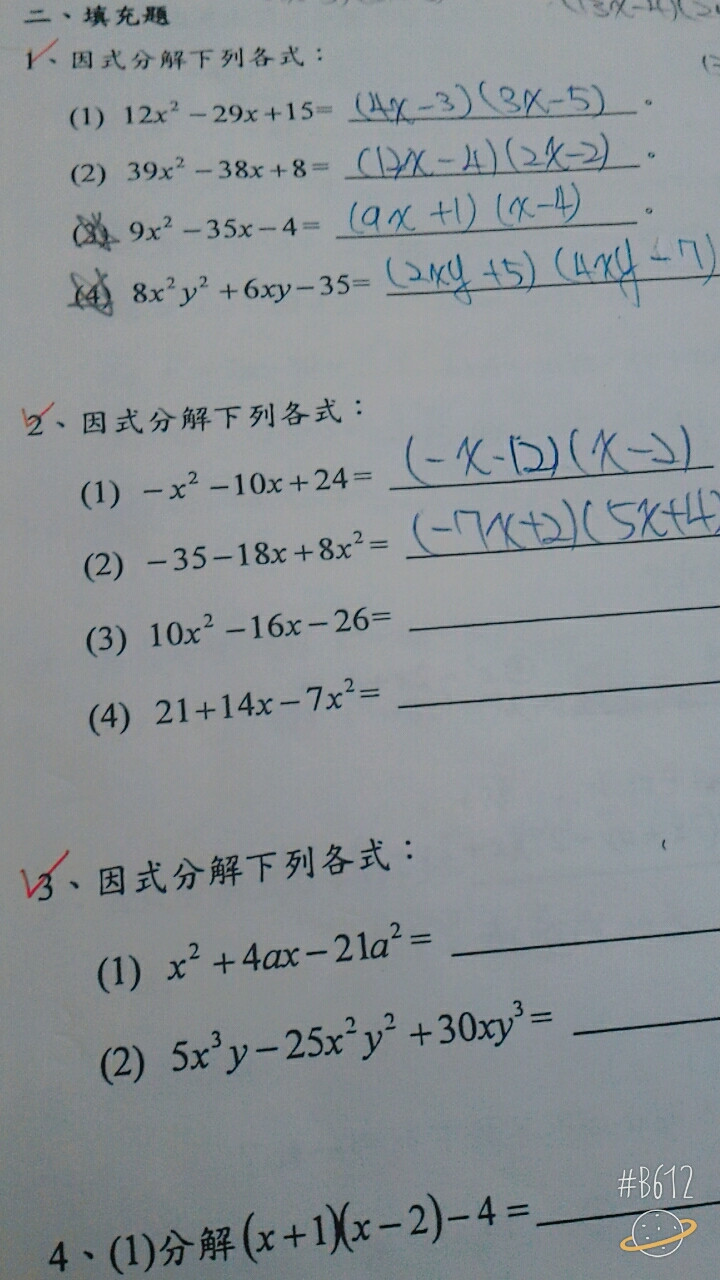 (13x-4)(2
二、填充題
1、因式分解下列各式：
(1) 12x² − 29x + 15 = (4x-3)(3x-5) 。
(2) 39x² − 38x + 8 = (12x-4)(2x-2) 。
(3) 9x² − 35x − 4 = (9x+1)(x-4) 。
(4) 8x²y² + 6xy − 35 = (2xy+5)(4xy-7)
2、因式分解下列各式：
(1) −x² − 10x + 24 = (-x-12)(x-2)
(2) −35 − 18x + 8x² = (-7x+2)(5x+4)
(3) 10x² − 16x − 26 =
(4) 21 + 14x − 7x² =
3、因式分解下列各式：
(1) x² + 4ax − 21a² =
(2) 5x³y − 25x²y² + 30xy³ =
4、(1)分解(x+1)(x−2)−4 =
#B612